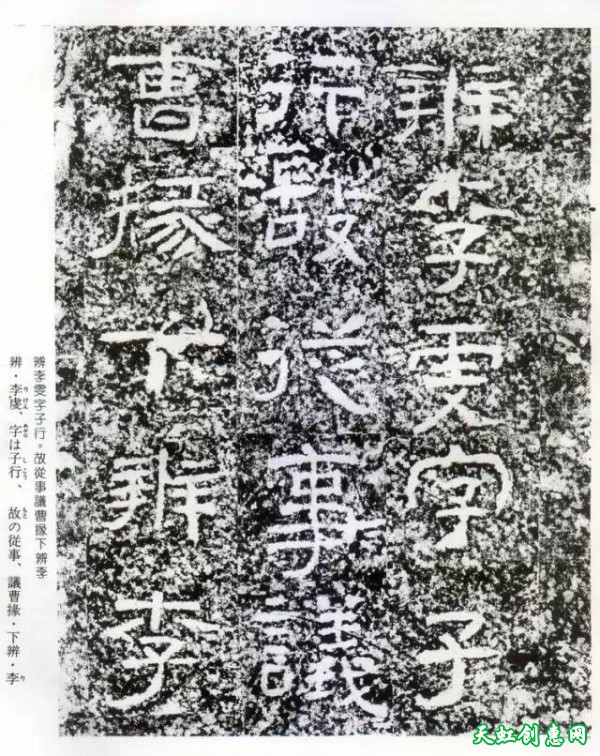 辨李雯字子
行故從事議
曹掾下辨李
辨李雯字子行。故從事議曹掾下辨李
辨・李虔、字は子行、故の從事、議曹掾・下辨・李
天虹创惠网